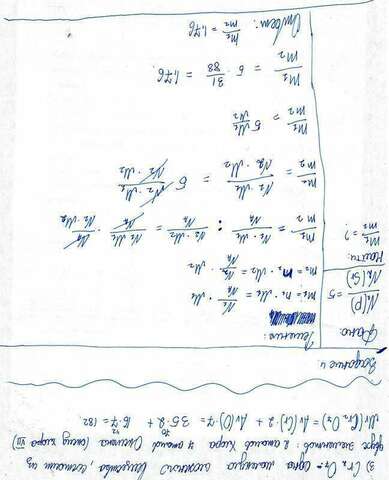 3) Cr₂ O₇ - одна молекула сложного вещества, состоит из
двух элементов: 2 атомов Хлора 7 атомов Оксигена (оксид хлора VII)
Mr(Cr₂O₇) = Ar(Cr)·2 + Ar(O)·7 = 35·2 + 16·7 = 182.
70
Задание 4.
Дано:
N₁(P)/N₂(Sr) = 5
Найти:
m₁/m₂ = ?
Решение:
m₁ = n₁ · M₁ = N₁/NA · M₁
m₂ = n₂ · M₂ = N₂/NA · M₂
m₁/m₂ = N₁·M₁/NA : N₂·M₂/NA = N₁·M₁/NA · NA/N₂·M₂
m₁/m₂ = N₁·M₁/N₂·M₂ = 5 N₂·M₁/N₂·M₂
m₁/m₂ = 5 M₁/M₂
m₁/m₂ = 5 · 31/88 = 1,76.
Ответ: m₁/m₂ = 1,76